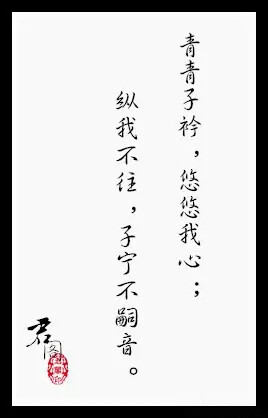 青青子衿，悠悠我心；
纵我不往，子宁不嗣音。
君图